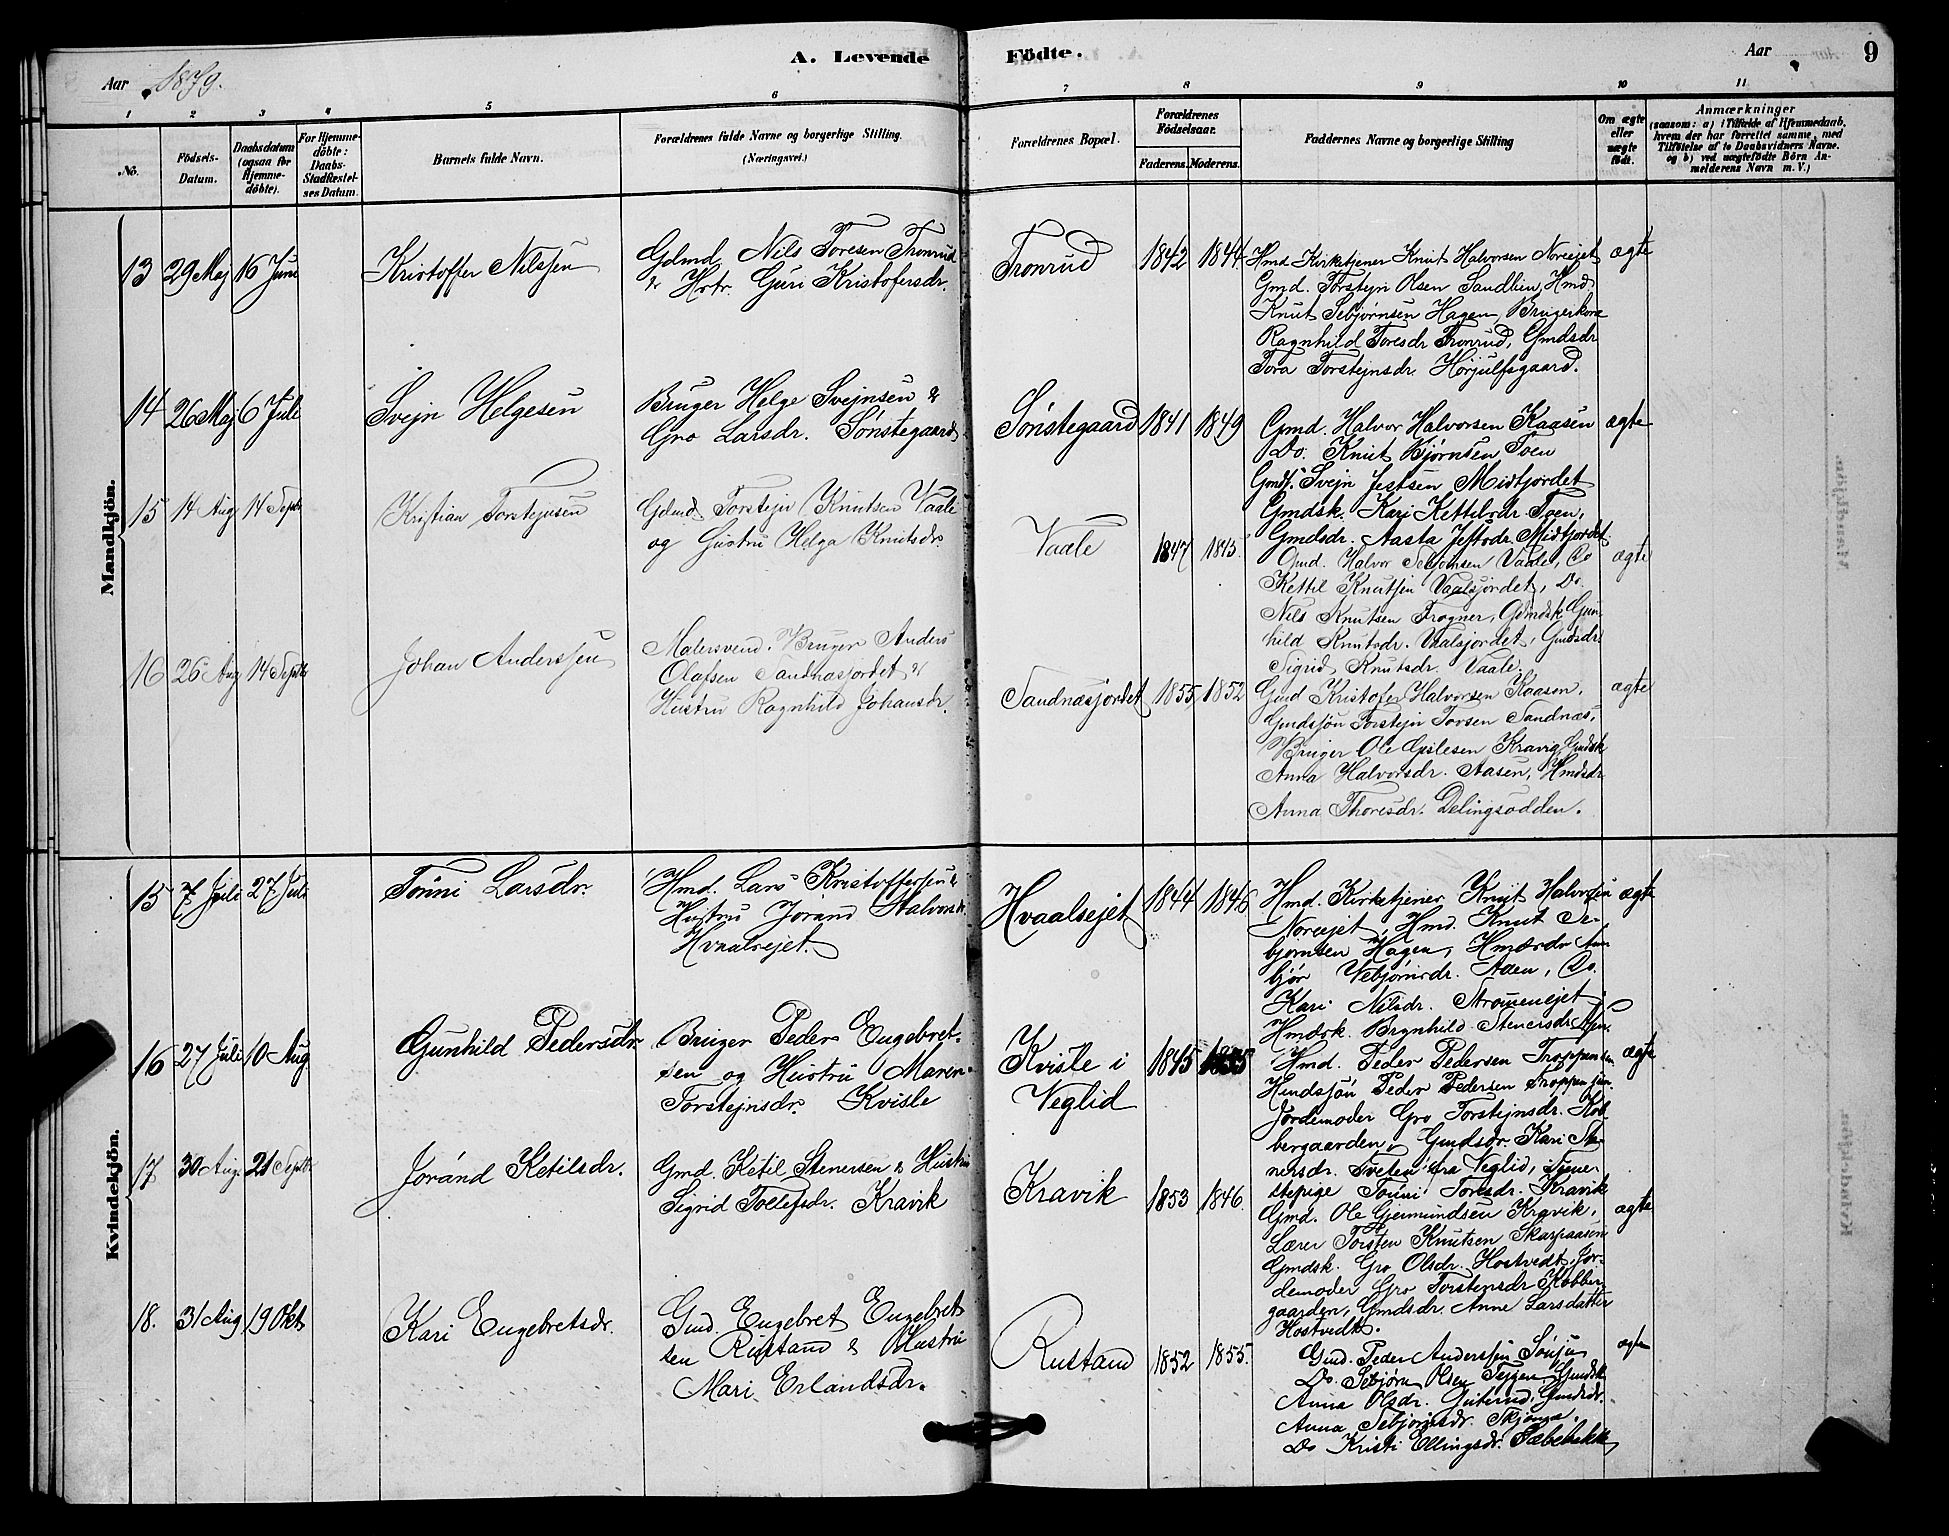 A. Levende Födte.
Aar 1879.
Aar
9
1 2 3 4 5 6 7 8 9 10 11
No.
Födsels-Datum.
Daabsdatum (ogsaa for Hjemme-döbte).
For Hjemme-döbte: Daabs-Stadfæstel-ses Datum.
Barnets fulde Navn.
Forældrenes fulde Navne og borgerlige Stilling. (Næringsvei.)
Forældrenes Bopæl.
Forældrenes Födselsaar.
Faderens. Moderens.
Faddernes Navne og borgerlige Stilling
Om ægte eller uægte födt.
Anmærkninger
(saasom: a) i Tilfælde af Hjemmedaab, hvem der har forrettet samme, med Tilföielse af to Daabsvidners Navne. og b) ved uægtefödte Börn An-melderens Navn m.V.)
Mandkjön.
13 29 Maj 16 Juni
Kristoffer Nilssen
Gdmd Nils Toresen Tronrud
& Hstr. Guri Kristofersdr.
Tronrud 1842 1844.
Hmd Kirketjener Knut Halvorsen Noreejet
Gmd. Torstejn Olsen Sandlien, Hmd.
Knut Sebjørnsen Hagen, Brugerkone
Ragnhild Toresdr Tronrud, Gmdsdr
Tora Torstejnsdr Hørjulfsgaard.
ægte
14 26 Maj 6 Juli
Svejn Helgesen
Bruger Helge Svejnsen &
Gro Larsdr. Sønstegaard
Sønstegaard 1841 1849
Gmd. Halvor Halvorsen Kaasen
Do. Knut Bjørnsen Toen
Gmdf. Svejn Jestsen Midtjordet
Gmdsk. Kari Kettilsdr Toen,
Gmdsdr. Aasta Jestsdr Midtjordet.
ægte
15 14 Aug 14 Septb
Kristian Torstejnsen
Gdmd Torstejn Knutsen Vaale
og Hustru Helga Knutsdr.
Vaale 1847 1845.
Gmd. Halvor Vaale, Do
Kettil Knutsen Vaalsjordet, Do.
Nils Knutsen Frogner, Gdmdsk Gun-
hild Knutsdr. Vaalsjordet, Gmdsdr.
Sigrid Knutsdr. Vaale.
ægte
16 26 Aug 14 Septb
Johan Anderssen
Malersvend. Bruger Anders
Olafsen Sandnæsjordet &
Hustru Ragnhild Johansdr.
Sandnæsjordet 1855 1852
Gmd Kristofer Halvorsen Kaasen,
Gmdssøn Torstejn Torsen Sandnæs,
Bruger Ole Gislesen Kravig, Gmdsk
Anna Halvorsdr. Aasen, Hmdsdr
Anna Thoresdr. Delingsodden.
ægte
Kvindekjön.
15 7 Juli 27 Juli
Tønni Larsdr.
Hmd. Lars Kristoffersen &
Hustru Jørand Halvorsdr
Hvaalsejet.
Hvaalsejet 1844 1846
Hmd. Kirketjener Knut Halvorsen
Noreejet, Hmd. Knut Se-
bjørnsen Hagen, Am-
bjør Vebjørnsdr. Aaen, Do.
Kari Nilsdr. Strømenejet,
Hmdsk. Brynhild Stenersdr
ægte
16 27 Juli 10 Aug
Gunhild Pedersdr.
Bruger Peder Engebret-
sen og Hustru Maren
Torstejnsdr. Kvisle
Kvisle i
Veglid
1845 1855
Hmd. Peder Pedersen Troppen sen
Hmdssøn Peder Pedersen Troppen jun.
Jordemoder Gro Torstejnsdr. Kob-
bergaarden, Gmdsdr. Kari Ste-
nersdr. Tveten fra Veglid, Tjene-
stepige Tønni Toresdr. Kravik
ægte
17 30 Aug. 21 Septb.
Jørand Ketilsdr.
Gmd. Ketil Stenersen & Hustru
Sigrid Tollefsdr. Kravik
Kravik 1853 1846.
Gmd. Ole Gjermundsen Kravik,
Lærer Torsten Knutsen Skarpaasen
Gmdsk. Gro Olsdr. Hostvedt, Jor-
demoder Gro Torstensdr Kobber-
gaarden, Gmdsdr. Anne Larsdatter
Hostvedt.
ægte
18. 31 Aug 19 Okt
Kari Engebretsdr.
Gmd Engebret Engebret-
sen Rustand & Hustru
Mari Erlandsdr.
Rustand 1852 1855.
Gmd. Peder Anderssen Sønju
Do. Sebjørn Olsen Teigen, Gmdsk
Anna Olsdr. Guterud, Gmdsdr.
Anna Sebjørnsdr. Skjønna.
Do Kristi Ellingsdr.
ægte